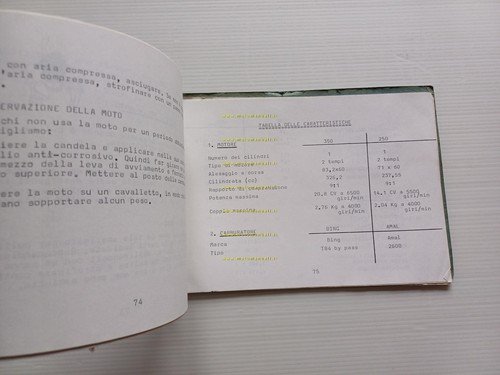 con aria compressa, asciugare. Se non
l'aria compressa, strofinare con un
ERVAZIONE DELLA MOTO
chi non usa la moto per un periodo
igliamo:
iere la candela e applicare
lio anti-corrosivo. Quindi far
mezzo della leva di avviamento e
o superiore. Mettere al posto della
ere la moto su un cavalletto, in
ano sopportare alcun peso.
74
TABELLA DELLE CARATTERISTICHE
1. MOTORE 350 250
Numero dei cilindri 1
Tipo di motore 2 tempi 2 tempi
Alesaggio e corsa 83,2x60 71 x 60
Cilindrata (cc) 326,2 237,55
Rapporto di compressione 9:1 9:1
Potenza massima 20.8 CV a 6500 giri/min 14.1 CV a 5500 giri/min
Coppia massima 2,76 Kg a 4000 giri/min 2,04 Kg a 4000 giri/min
2. CARBURATORE BING AMAL
Marca Bing Amal
Tipo T84 by pass 2600
75